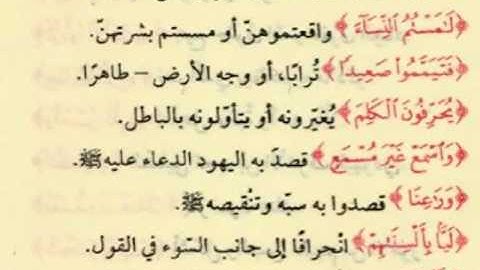 ﴿لَٰمَسْتُمُ النِّسَآءَ﴾ واقعتموهنّ أو مسستم بشرتهنّ.
﴿فَتَيَمَّمُوا صَعِيدًا﴾ تُرابًا، أو وجه الأرض – طاهرًا.
﴿يُحَرِّفُونَ الْكَلِمَ﴾ يُغَيّرونه أو يتأوّلونه بالباطل.
﴿وَاسْمَعْ غَيْرَ مُسْمَعٍ﴾ قصدَ به اليهود الدعاء عليه ﷺ.
﴿وَرَٰعِنَا﴾ قصدوا به سبّه وتنْقيصه ﷺ.
﴿لَيًّا بِأَلْسِنَتِهِمْ﴾ انْحرافًا إلى جانب السّوء في القول.